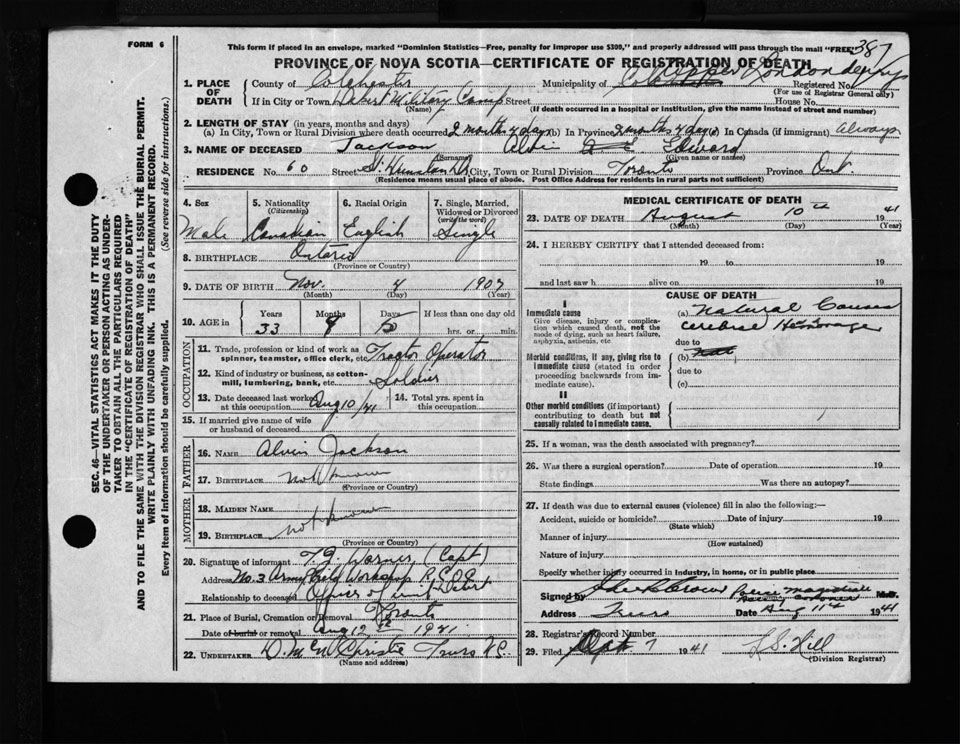 FORM 6
This form if placed in an envelope, marked "Dominion Statistics—Free, penalty for improper use $300," and properly addressed will pass through the mail "FREE" 387
PROVINCE OF NOVA SCOTIA—CERTIFICATE OF REGISTRATION OF DEATH
1. PLACE OF DEATH County of Colchester Municipality of Upper Londonderry Registered No.
(For use of Registrar General only)
If in City or Town Debert Military Camp Street House No.
(Name) (If death occurred in a hospital or institution, give the name instead of street and number)
2. LENGTH OF STAY (in years, months and days)
(a) In City, Town or Rural Division where death occurred 2 months 4 days (b) In Province 2 months 4 days (c) In Canada (if immigrant) Always
3. NAME OF DECEASED Jackson Alvin Edward
(Surname) (Given name or names)
RESIDENCE No. 60 Street St. City, Town or Rural Division Toronto Province Ont.
(Residence means usual place of abode. Post Office Address for residents in rural parts not sufficient)
4. Sex Male
5. Nationality (Citizenship) Canadian
6. Racial Origin English
7. Single, Married, Widowed or Divorced (write the word) Single
8. BIRTHPLACE Ontario
(Province or Country)
9. DATE OF BIRTH Nov. 4 1907
(Month) (Day) (Year)
10. AGE in Years Months Days If less than one day old
33 9 hrs. or min.
OCCUPATION
11. Trade, profession or kind of work as spinner, teamster, office clerk, etc. Tractor Operator
12. Kind of industry or business, as cotton-mill, lumbering, bank, etc. Soldier
13. Date deceased last worked at this occupation Aug 10/41
14. Total yrs. spent in this occupation
15. If married give name of wife or husband of deceased
FATHER
16. NAME Alvin Jackson
17. BIRTHPLACE not known
(Province or Country)
MOTHER
18. MAIDEN NAME
19. BIRTHPLACE not known
(Province or Country)
20. Signature of informant T. J. Warner (Capt)
Address No. 3 Army Field Workshop R.C.O.C.
Relationship to deceased Officer of unit Debert
21. Place of Burial, Cremation or Removal Toronto
Date of burial or removal Aug 12th 1941.
22. UNDERTAKER Christie Truro N.S.
(Name and address)
MEDICAL CERTIFICATE OF DEATH
23. DATE OF DEATH August 10th 1941
(Month) (Day) (Year)
24. I HEREBY CERTIFY that I attended deceased from:
19 to 19
and last saw h alive on 19
CAUSE OF DEATH
I
Immediate cause
Give disease, injury or complication which caused death, not the mode of dying, such as heart failure, asphyxia, asthenia, etc
(a) Natural Causes
Cerebral Hemorrage
due to
Morbid conditions, if any, giving rise to immediate cause (stated in order proceeding backwards from immediate cause).
(b)
due to
(c)
II
Other morbid conditions (if important) contributing to death but not causally related to immediate cause.
25. If a woman, was the death associated with pregnancy?
26. Was there a surgical operation? Date of operation 19
State findings Was there an autopsy?
27. If death was due to external causes (violence) fill in also the following:—
Accident, suicide or homicide? Date of injury 19
(State which)
Manner of injury
(How sustained)
Nature of injury
Specify whether injury occurred in industry, in home, or in public place
Signed by M.D.
Address Truro Date Aug 11th 1941
28. Registrar's Record Number
29. Filed Sept. 7 1941 Hill
(Division Registrar)
SEC. 46—VITAL STATISTICS ACT MAKES IT THE DUTY
OF THE UNDERTAKER OR PERSON ACTING AS UNDER-
TAKER TO OBTAIN ALL THE PARTICULARS REQUIRED
IN THE "CERTIFICATE OF REGISTRATION OF DEATH"
AND TO FILE THE SAME WITH THE DIVISION REGISTRAR WHO SHALL ISSUE THE BURIAL PERMIT.
WRITE PLAINLY WITH UNFADING INK. THIS IS A PERMANENT RECORD.
Every item of information should be carefully supplied. (See reverse side for instructions.)